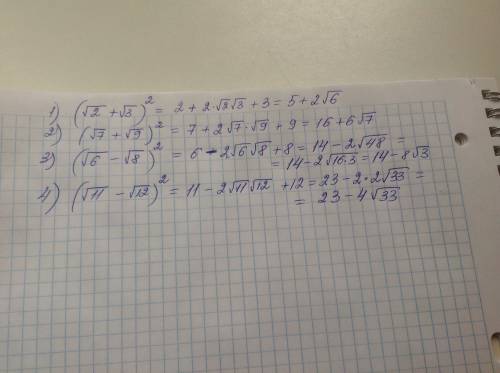 1) (√2 + √3)² = 2 + 2·√2√3 + 3 = 5 + 2√6
2) (√7 + √9)² = 7 + 2√7·√9 + 9 = 16 + 6√7
3) (√6 − √8)² = 6 − 2√6√8 + 8 = 14 − 2√48 =
= 14 − 2√16·3 = 14 − 8√3
4) (√11 − √12)² = 11 − 2√11√12 + 12 = 23 − 2·2√33 =
= 23 − 4√33